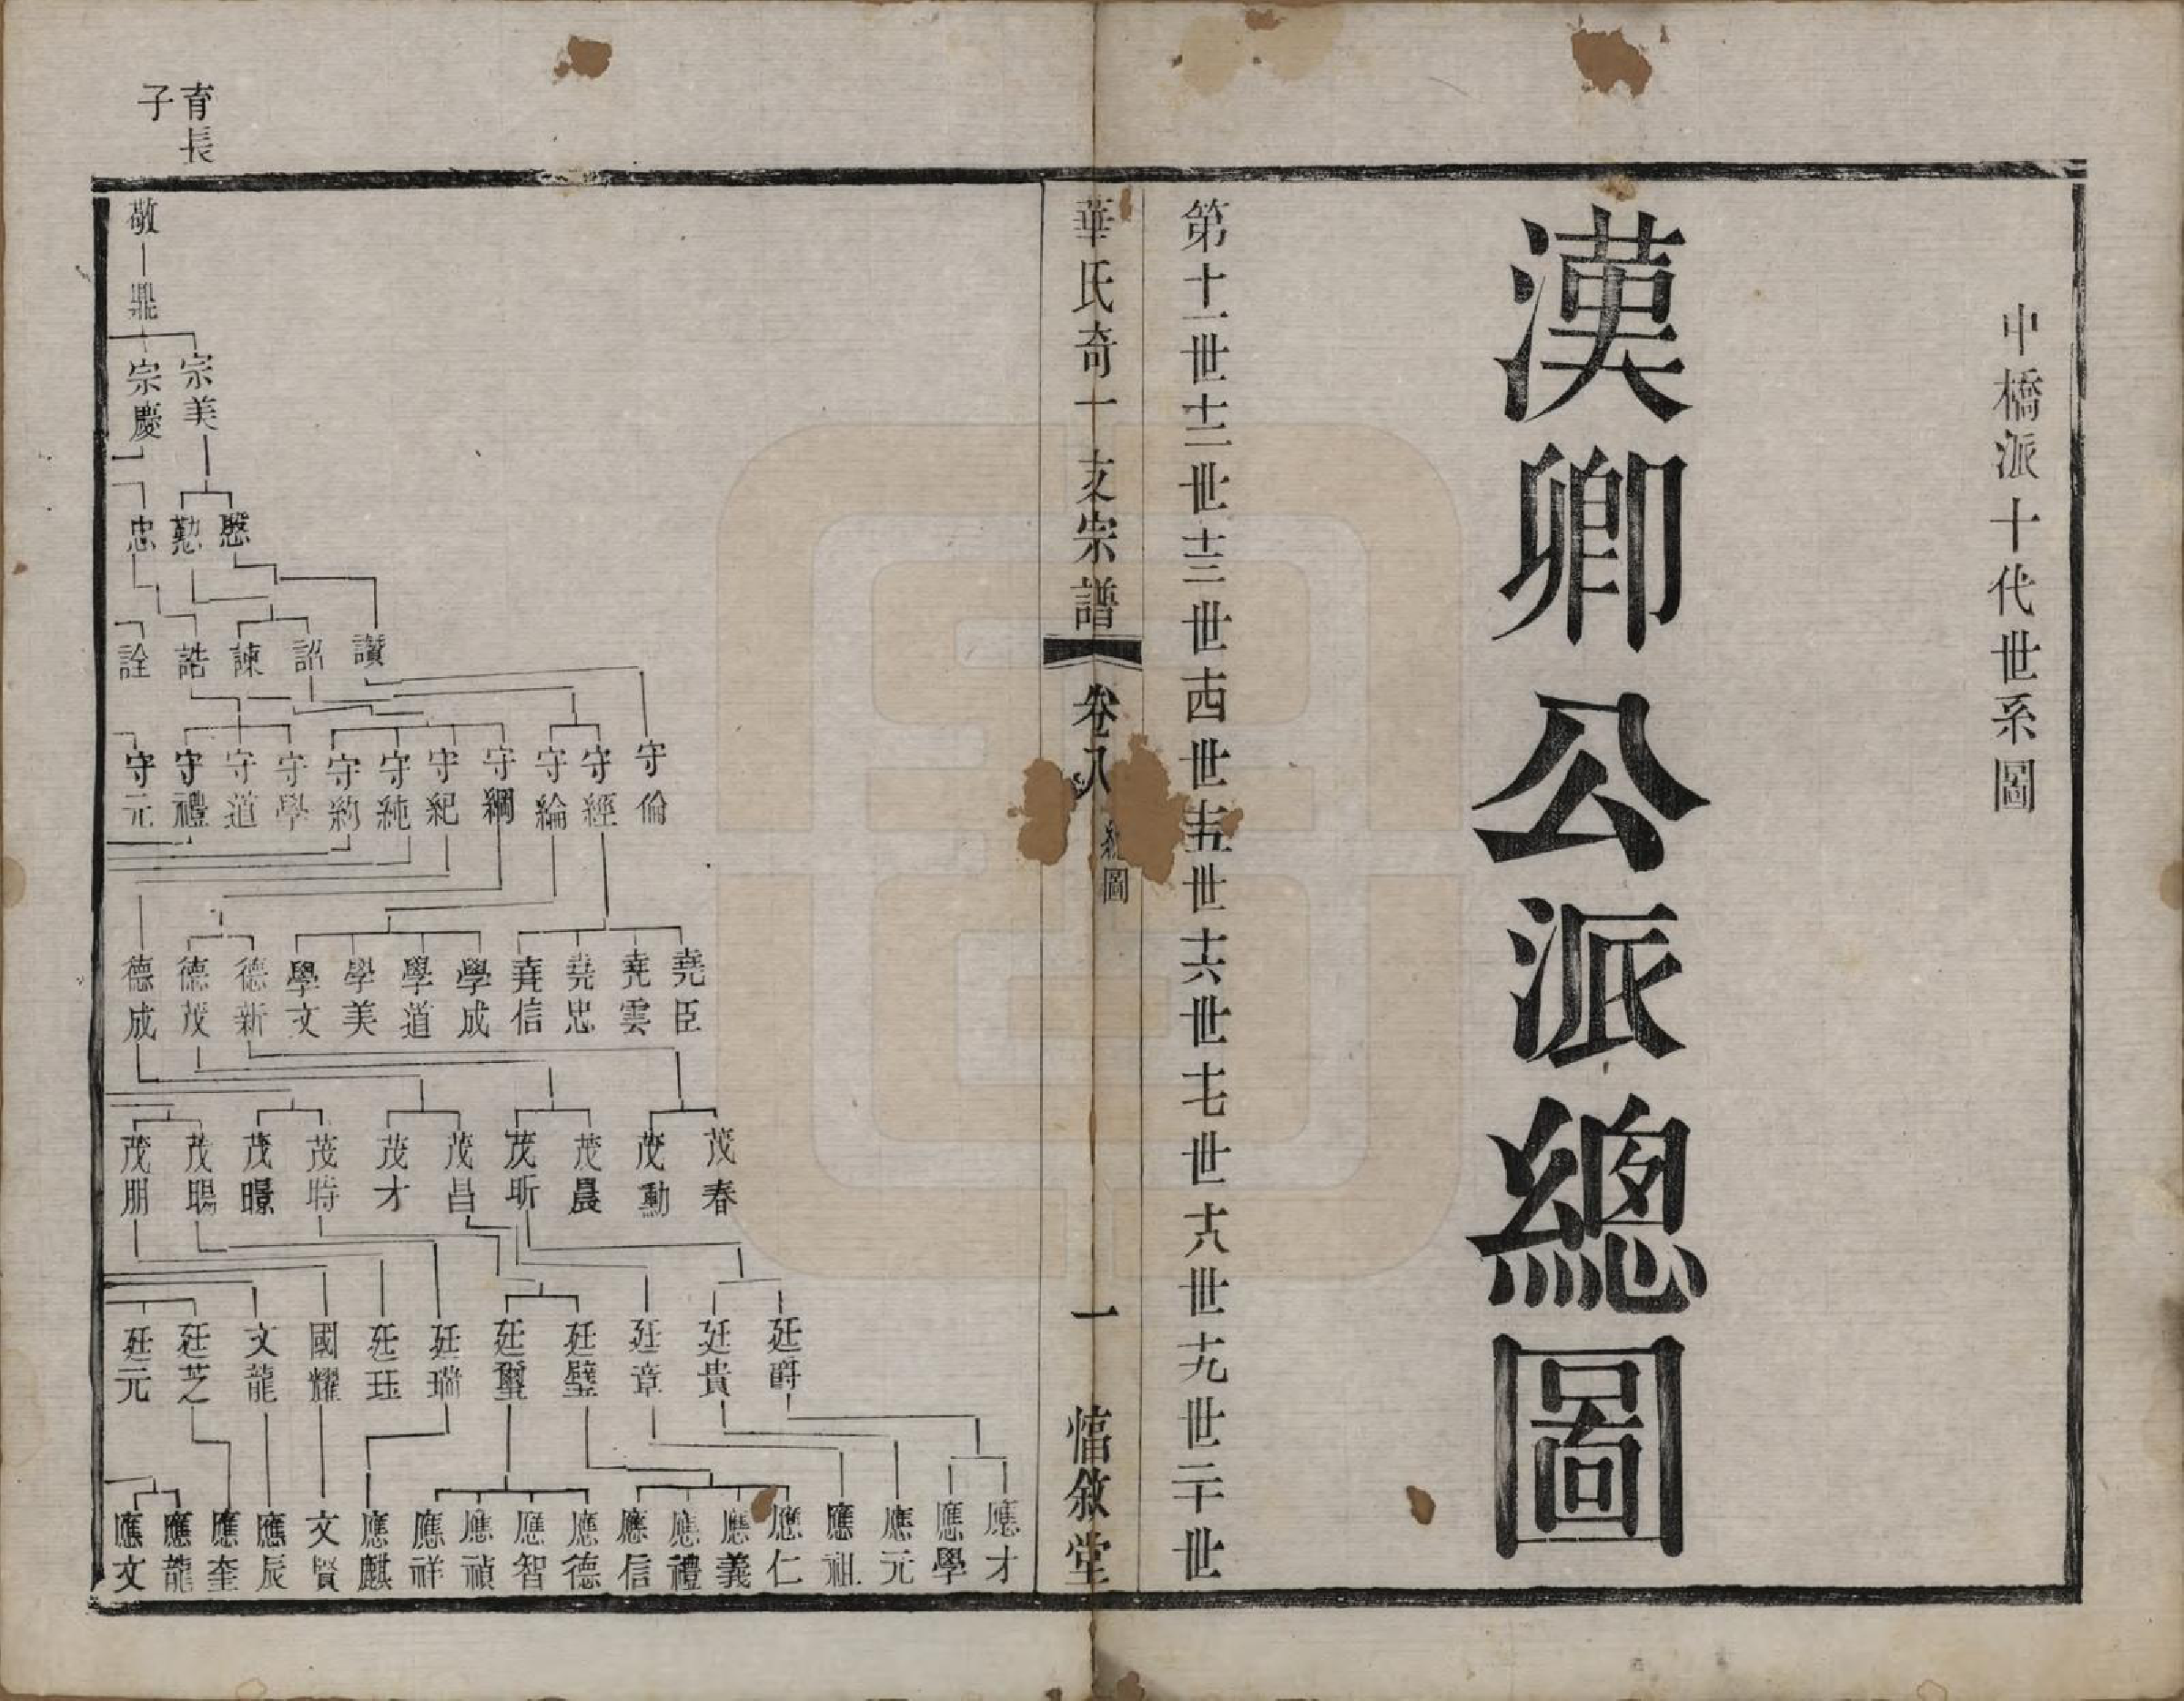 中橋派十代世系圖
漢卿公派總圖
第十一世十二世十三世十四世十五世十六世十七世十八世十九世二十世
華氏奇一支宗譜 卷八 總圖 一 惇敘堂
育長
子
敬 鼎
宗美 宗慶
愍 懃 忠
讚 詔 諫 誥 詮
守倫 守經 守綸 守綱 守紀 守純 守約 守學 守道 守禮 守元
堯臣 堯雲 堯忠 堯信 學成 學道 學美 學文 德新 德茂 德成
茂春 茂勳 茂晨 茂昕 茂昌 茂才 茂時 茂暻 茂暘 茂朋
廷爵 廷貴 廷章 廷璧 廷璽 廷瑞 廷珏 國耀 文龍 廷芝 廷元
應才 應學 應元 應祖 應仁 應義 應禮 應信 應德 應智 應禎 應祥 應麒 文賢 應辰 應奎 應龍 應文